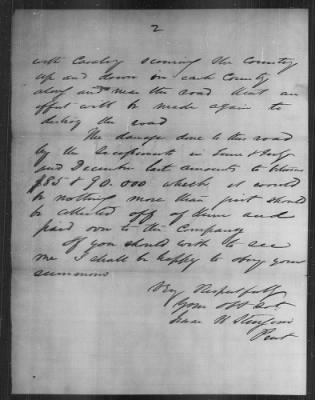 2
with Cavalry scouring the Country
up and down on each County
along and near the road that an
effort will be made again to
destroy the road
The damage done to this road
by the in June & July
and December last amounts to between
$85 & 90.000 which it would
be nothing more than just should
be collected off of them and
paid over to the Company
If you should wish to see
me I shall be happy to obey your
summons
Very Respectfully
Your Obt Svt.
Isaac
Prest